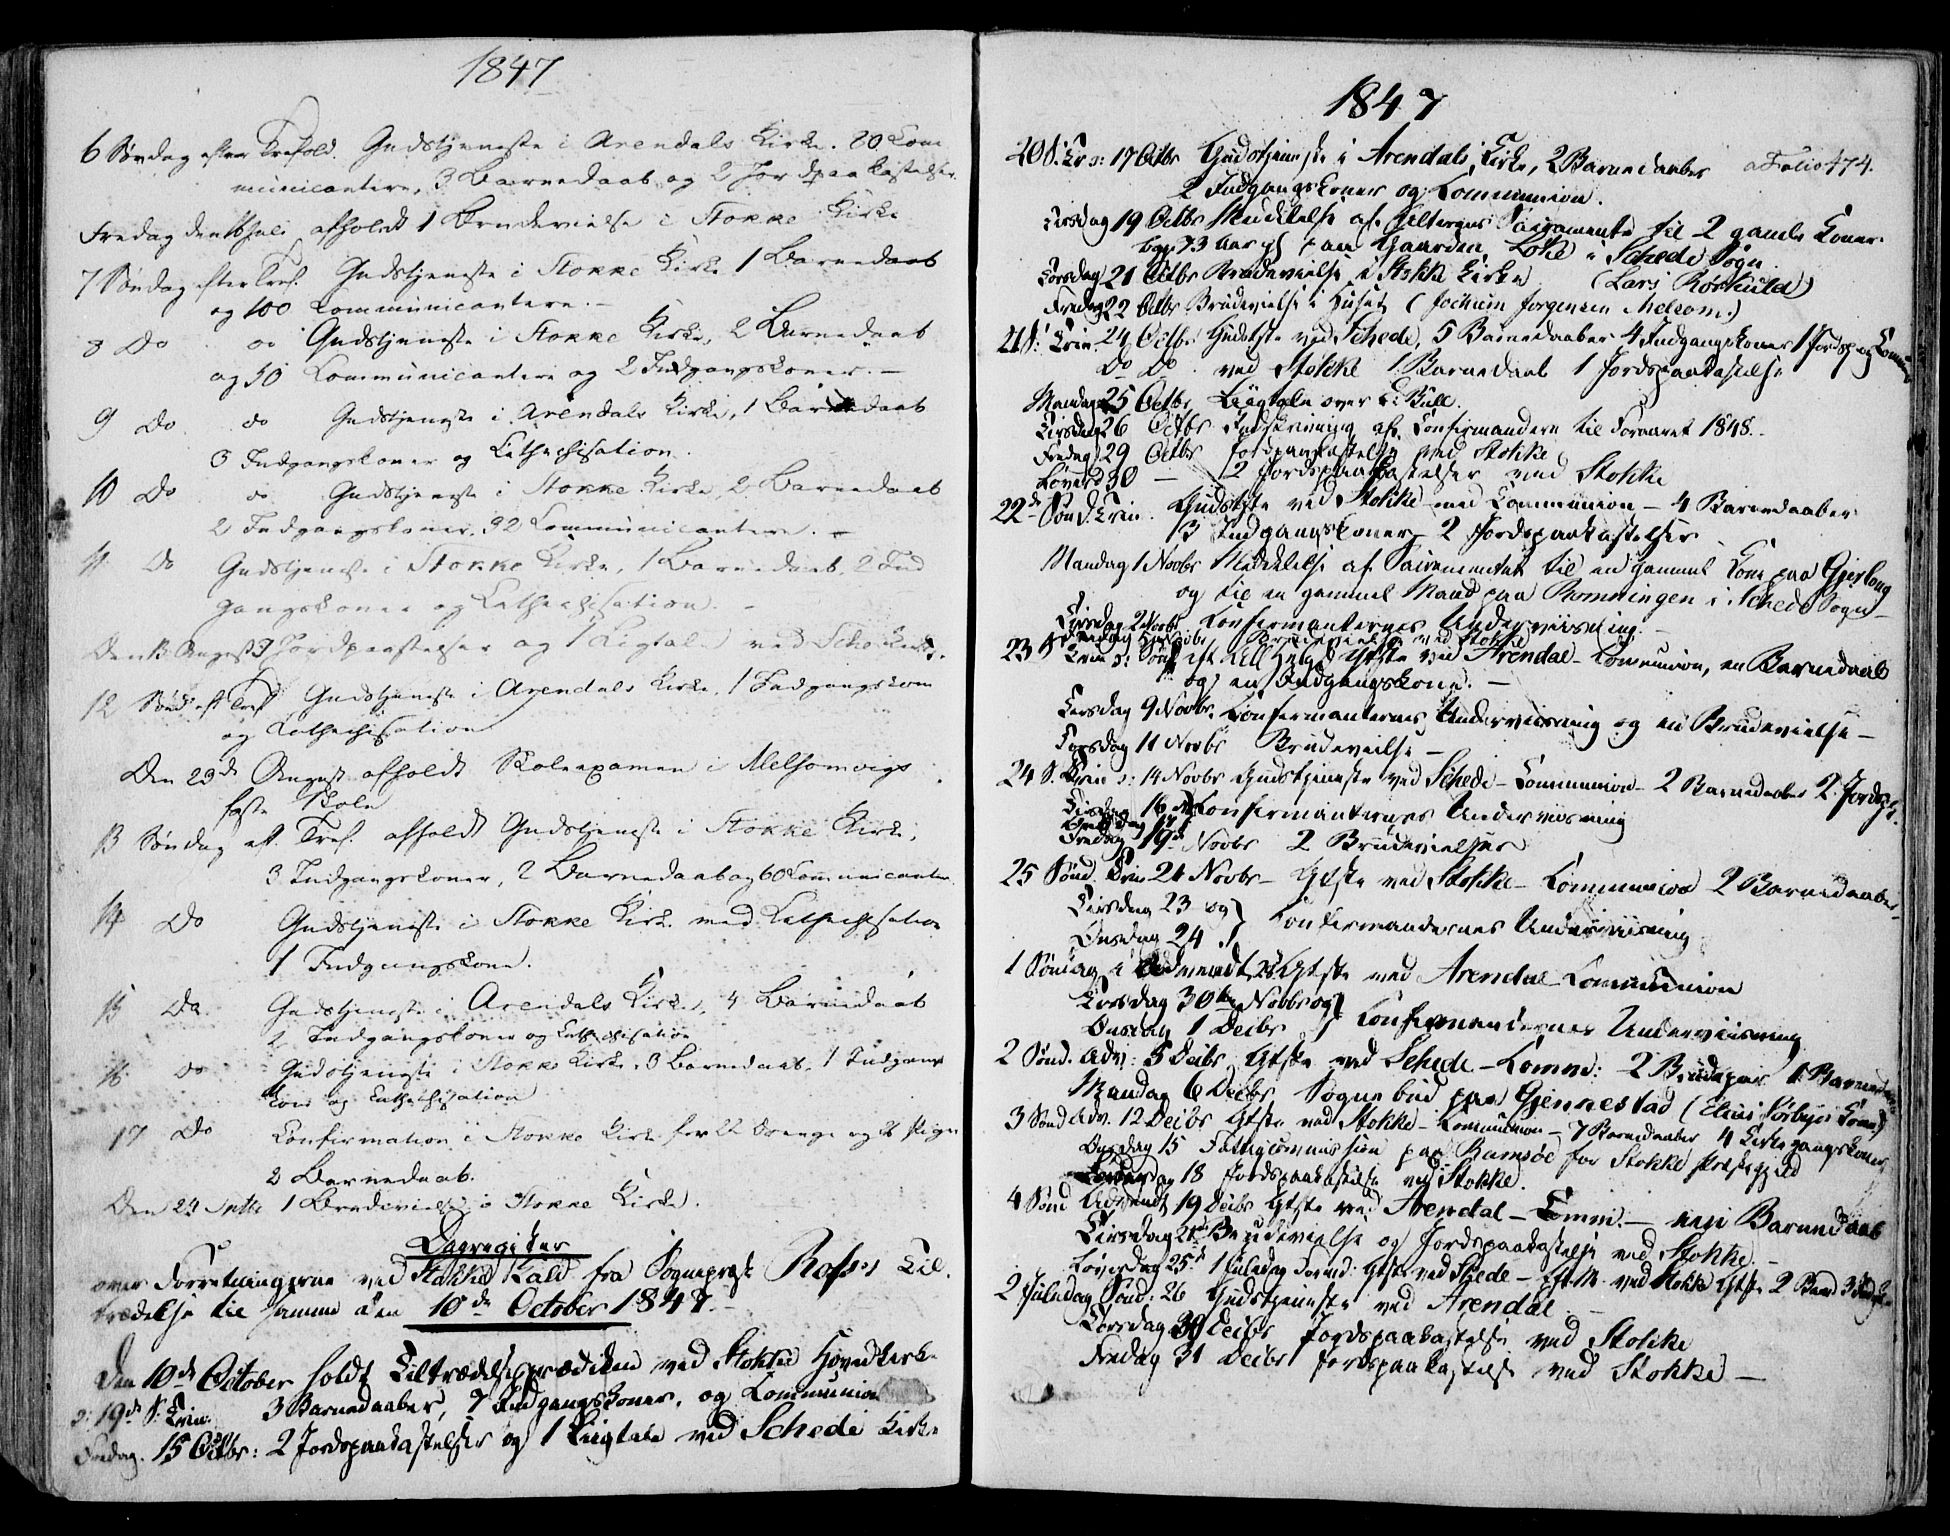 1847
6 Søndag efter Trefold. Gudstjeneste i Arendals Kirke. 80 Com
municantere, 3 Barnedaab og 2 Jordpaakastelser
Fredag den Juli afholdt 1 Brudevielse i Stokke Kirke
7 Søndag efter Tref. Gudstjeneste i Stokke Kirke 1 Barnedaab
og 100 Communicantere. –
8 Do do Gudstjeneste i Stokke Kirke, 2 Barnedaab
og 50 Communicantere og 2 Indgangskoner. –
9 Do do Gudstjeneste i Arendals Kirke, 1 Barnedaab
3 Indgangskoner og Cathechisation.
10 Do do Gudstjeneste i Stokke Kirke, 2 Barnedaab
2 Indgangskoner, 92 Communicantere. –
11 Do Gudstjeneste i Stokke Kirke, 1 Barnedaab, 2 Ind
gangskoner og Cathechisation. –
Den 13 August Jordpaastelser og 1 Ligtale ved Kirke.
12 Sønd eft Tref Gudstjeneste i Arendals Kirke, 1 Indgangskone
og Cathechisation
Den 23de August afholdt Skoleexamen i Melsomvigs
faste Skole
13 Søndag eft. Tref. afholdt Gudstjeneste i Stokke Kirke,
3 Indgangskoner, 2 Barnedaab og 60 Communicanter.
14 Do Gudstjeneste i Stokke Kirke med Cathechisation
1 Indgangskone.
15 Do Gudstjeneste i Arendals Kirke, 4 Barnedaab
2 Indgangskoner og Cathechisation
16 do Gudstjeneste i Stokke Kirke, 3 Barnedaab, 1 Indgangs
kone og Cathechisation
17 Do Confirmation i Stokke Kirke for 22 Drenge og Piger
2 Barnedaab.
Den 23 Septbr 1 Brudevielse i Stokke Kirke.
Dagregister
over Forretningerne ved Stokke Kald fra Sognepræst Til
trædelse til samme den 10de October 1847. –
Den 10de October holdt Tiltrædelsesprædiken ved Stokke Hovedkirke
ɔ: 19de S: Trin: 3 Barnedaaber, 7 Indgangskoner, og Communion
Fredag. 15 Octbr: 2 Jordpaakastelser og 1 Liigtale ved Schede Kirke
1847
20 S. Tr ɔ: 17 Octbr Gudstjeneste i Arendals Kirke, 2 Barnedaaber a Folio 474.
2 Indgangskoner og Communion.
Tirsdag 19 Octbr Meddelelse af Alterens Sacramente til 2 gamle Koner
73 Aar paa Gaarden i Schede Sogn
Torsdag 21 Octbr Brudevielse i Stokke Kirke (Lars )
Fredag 22 Octbr Brudevielse i Huset (Jochum Jørgensen Melsom.)
21 S: Trin. 24 Octbr Gudstste ved Schede, 5 Barnedaaber 4 Indgangskoner 1 Jordsp og Commun
Do Do ved Stokke 1 Barnedaab 1 Jordspaakastelse
Mandag 25 Octbr Liigtale over Bull.
Tirsdag 26 Octbr Indskrivning af Confirmandere til Foraaret 1848.
Fredag 29 Octbr Jordpaakastelse ved Stokke
Løverd 30 – 2 Jordspaakastelser ved Stokke
22de Sønd. Trin. Gudstste ved Stokke med Communion – 4 Barnedaaber
3 Indgangskoner 2 Jordspaakastelser
Mandag 1 Novbr Meddelelse af Sacramentet til en gammel Kone paa Gjerlong
og til en gammel Mand paa Romningen i Schede Sogn –
Tirsdag 2 Novbr Confirmanternes Underviisning. –
Brudevielse ved Stokke
23 S Trin ɔ: Sønd eft All Helg. Gtste ved Arendal – Communion, en Barnedaab
og en Indgangskone. –
Tirsdag 9 Novbr. Confirmanternes Underviisning og en Brudevielse –
Torsdag 11 Novbr Brudevielse –
24 S. Trin ɔ: 14 Novbr Gudstjeneste ved Schede – Communion – 2 Barnedaaber 2 Jordsp.
Tirsdag 16 Confirmanternes Underviisning
Fredag 19de Novbr 2 Brudevielser
25 Sønd. Trin 21 Novbr – Gtste ved Stokke – Communion 2 Barnedaaber,
Tirsdag 23 og
Onsdag 24 } Confirmandernes Underviisning
1 Søndag i Advendt, 28 Gtste ved Arendal – Communion
Tirsdag 30te Novbr og
Onsdag 1 Decbr } Confirmandernes Underviisning
2 Sønd. Adv: 5 Decbr Gtste ved Schede – Commu: 2 Brudepar 1 Barnedaab
Mandag 6 Decbr Sognebud paa Gjennestad
3 Sønd Adv. 12 Decbr Gtste ved Stokke – Communion – 7 Barnedaaber 4 Kirkegangskoner
Onsdag 15 Fattigcommission paa Ramsøe for Stokke Præstegjeld
18 Jordspaakastelse ved Stokke.
4 Sønd Advendt 19 Decbr Gtste ved Arendal – Comm. – een Barnedaab
Tirsdag 21de Brudevielse og Jordspaakastelse ved Stokke. –
Løverdag 25de 1 Juledag Formd: Gtste ved Skede – Eft. M. ved Stokke Gtste 2 Barned 3
2 Juledag Sønd: 26 Gudstjeneste ved Arendal. –
Torsdag 30 Decbr Jordspaakastelse ved Stokke
Fredag 31 Decbr Jordspaakastelse ved Stokke –